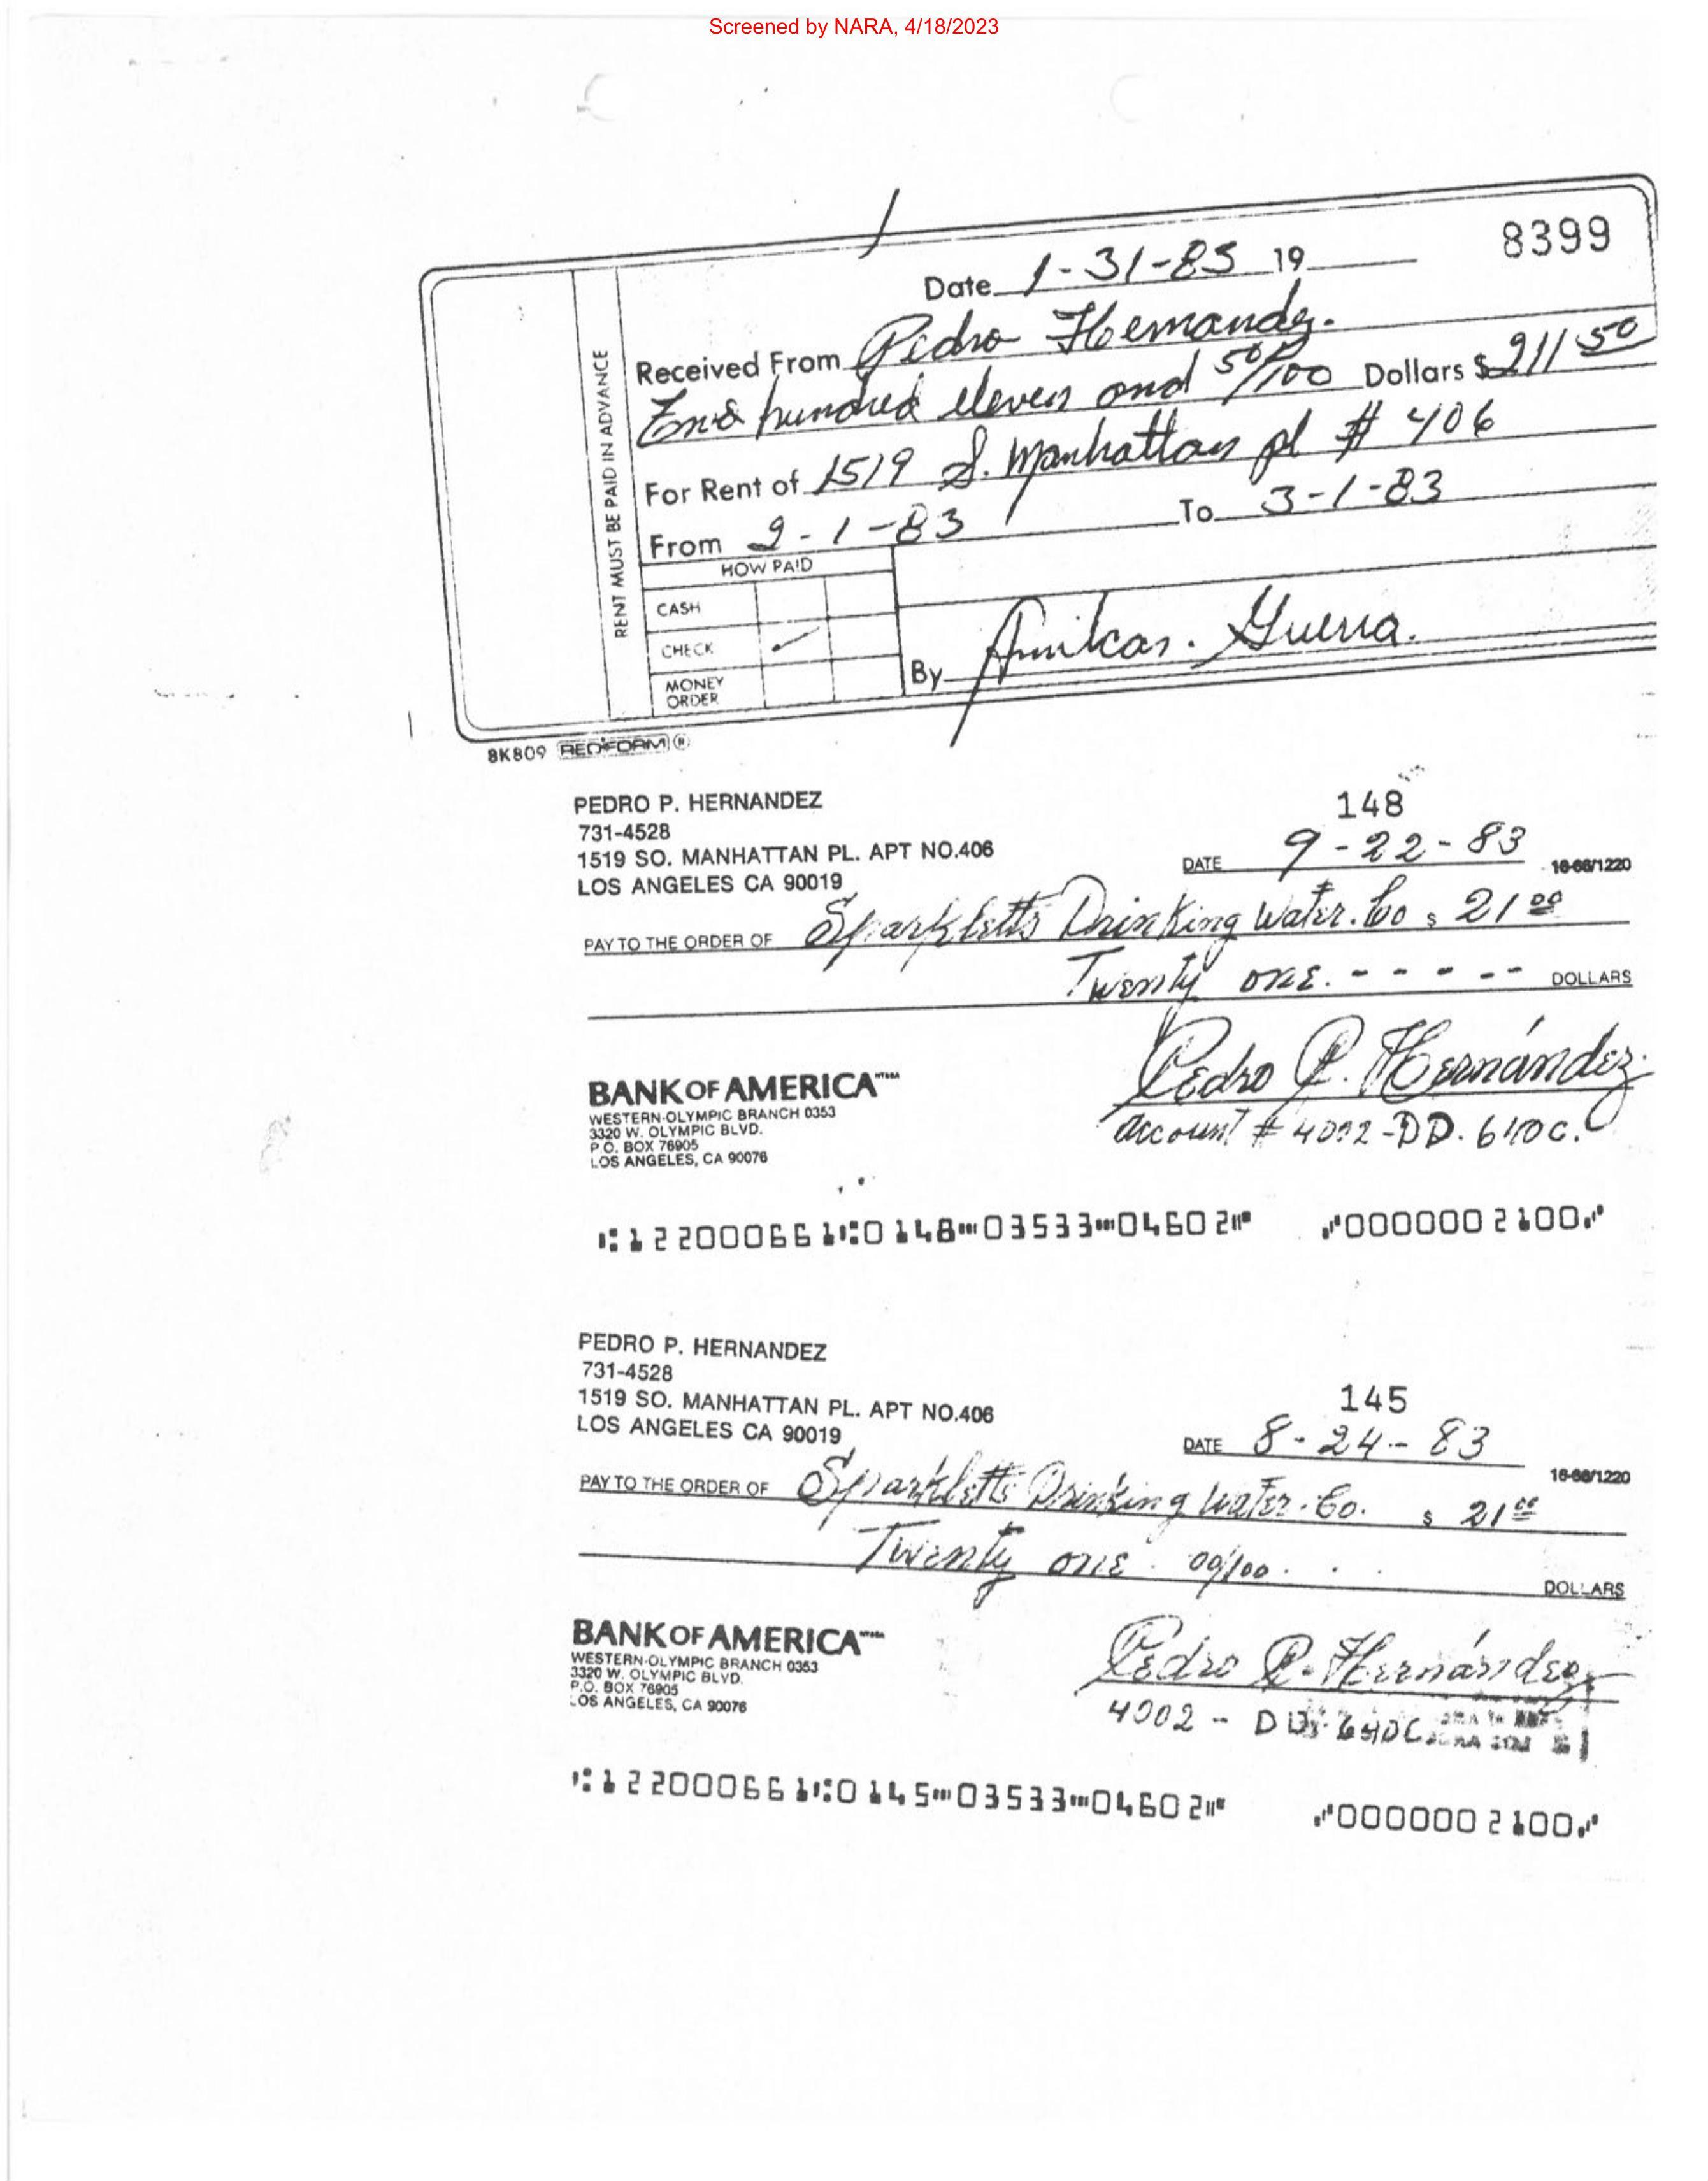 Screened by NARA, 4/18/2023
8399
Date 1-31-83 19
Received From Pedro Hernandez.
hundred eleven and 50/100 Dollars $ 211 50
For Rent of 1519 S. Manhattan pl # 406
From 2-1-83 To 3-1-83
RENT MUST BE PAID IN ADVANCE
HOW PAID
CASH
CHECK
MONEY ORDER
By Amilcar. Guerra.
8K809 REDIFORM ®
PEDRO P. HERNANDEZ
731-4528
1519 SO. MANHATTAN PL. APT NO.406
LOS ANGELES CA 90019
148
DATE 9-22-83
16-66/1220
PAY TO THE ORDER OF Sparkletts Drinking Water. Co $ 21 00
Twenty one. - - - - - DOLLARS
Pedro P. Hernández.
BANK OF AMERICA
WESTERN-OLYMPIC BRANCH 0353
3320 W. OLYMPIC BLVD.
P.O. BOX 76905
LOS ANGELES, CA 90076
account # 4002-DD.
⑆122000661⑆0148⑈03533⑈04602⑈ ⑈0000002100⑈
PEDRO P. HERNANDEZ
731-4528
1519 SO. MANHATTAN PL. APT NO.406
LOS ANGELES CA 90019
145
DATE 8-24-83
16-66/1220
PAY TO THE ORDER OF Sparkletts Drinking Water. Co. $ 21 00
Twenty one 00/100 . . . DOLLARS
BANK OF AMERICA
WESTERN-OLYMPIC BRANCH 0353
3320 W. OLYMPIC BLVD.
P.O. BOX 76905
LOS ANGELES, CA 90076
Pedro P. Hernández
4002 -
⑆122000661⑆0145⑈03533⑈04602⑈ ⑈0000002100⑈